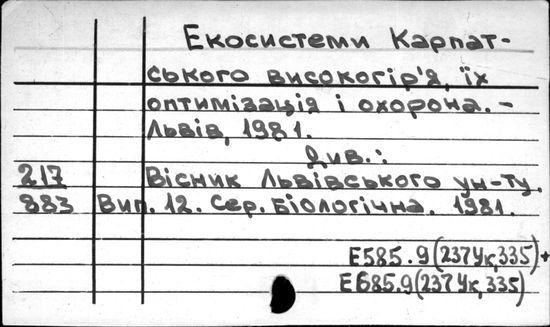 Екосистеми Карпат-
ського високогір'я, їх
оптимізація і охорона. –
Львів, 1981.
Див.:
217 Вісник Львівського ун-ту.
883 Вип. 12. Сер. Біологічна. 1981.
Е585.9(237Ук,335)+
Е685.9(237Ук,335)